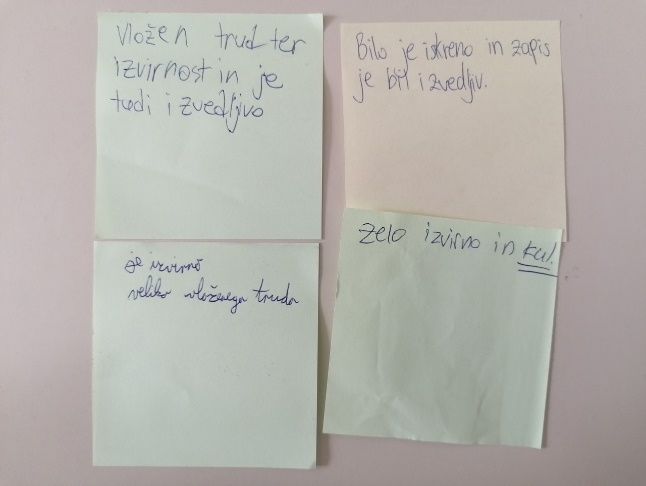 Vložen trud ter
izvirnost in je
tudi izvedljivo
Bilo je iskreno in zapis
je bil izvedljiv.
je izvirno
veliko vloženega truda
Zelo izvirno in kul.